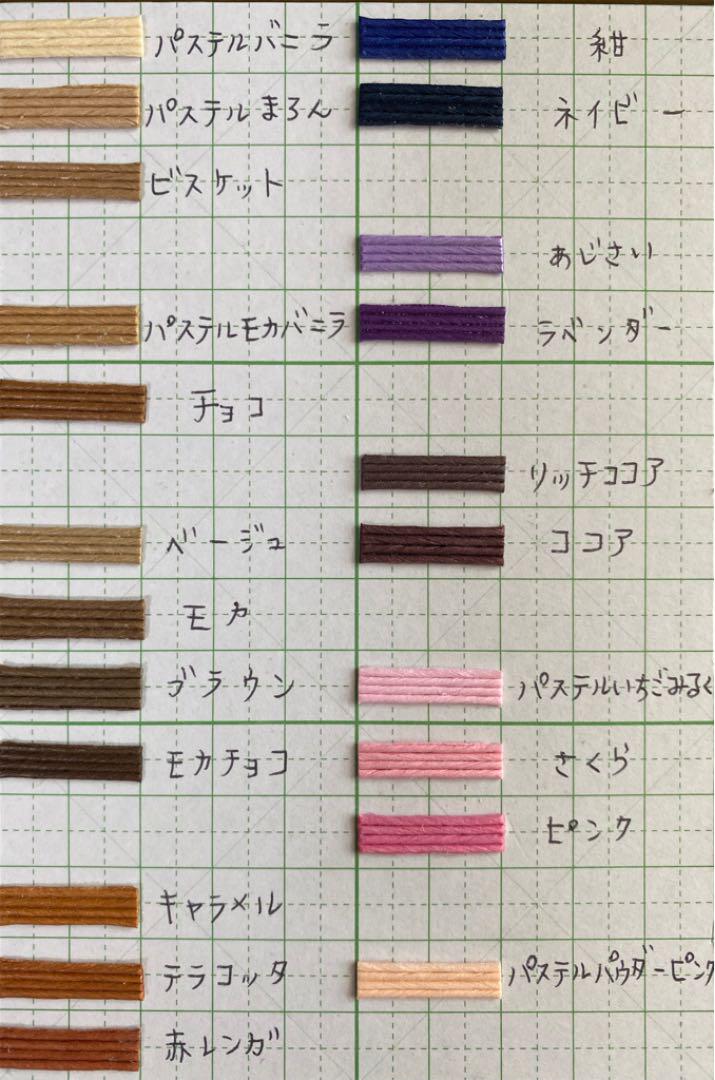 パステルバニラ
パステルまろん
ビスケット
パステルモカバニラ
チョコ
ベージュ
モカ
ブラウン
モカチョコ
キャラメル
テラコッタ
赤レンガ
紺
ネイビー
あじさい
ラベンダー
リッチココア
ココア
パステルいちごみるく
さくら
ピンク
パステルパウダーピンク